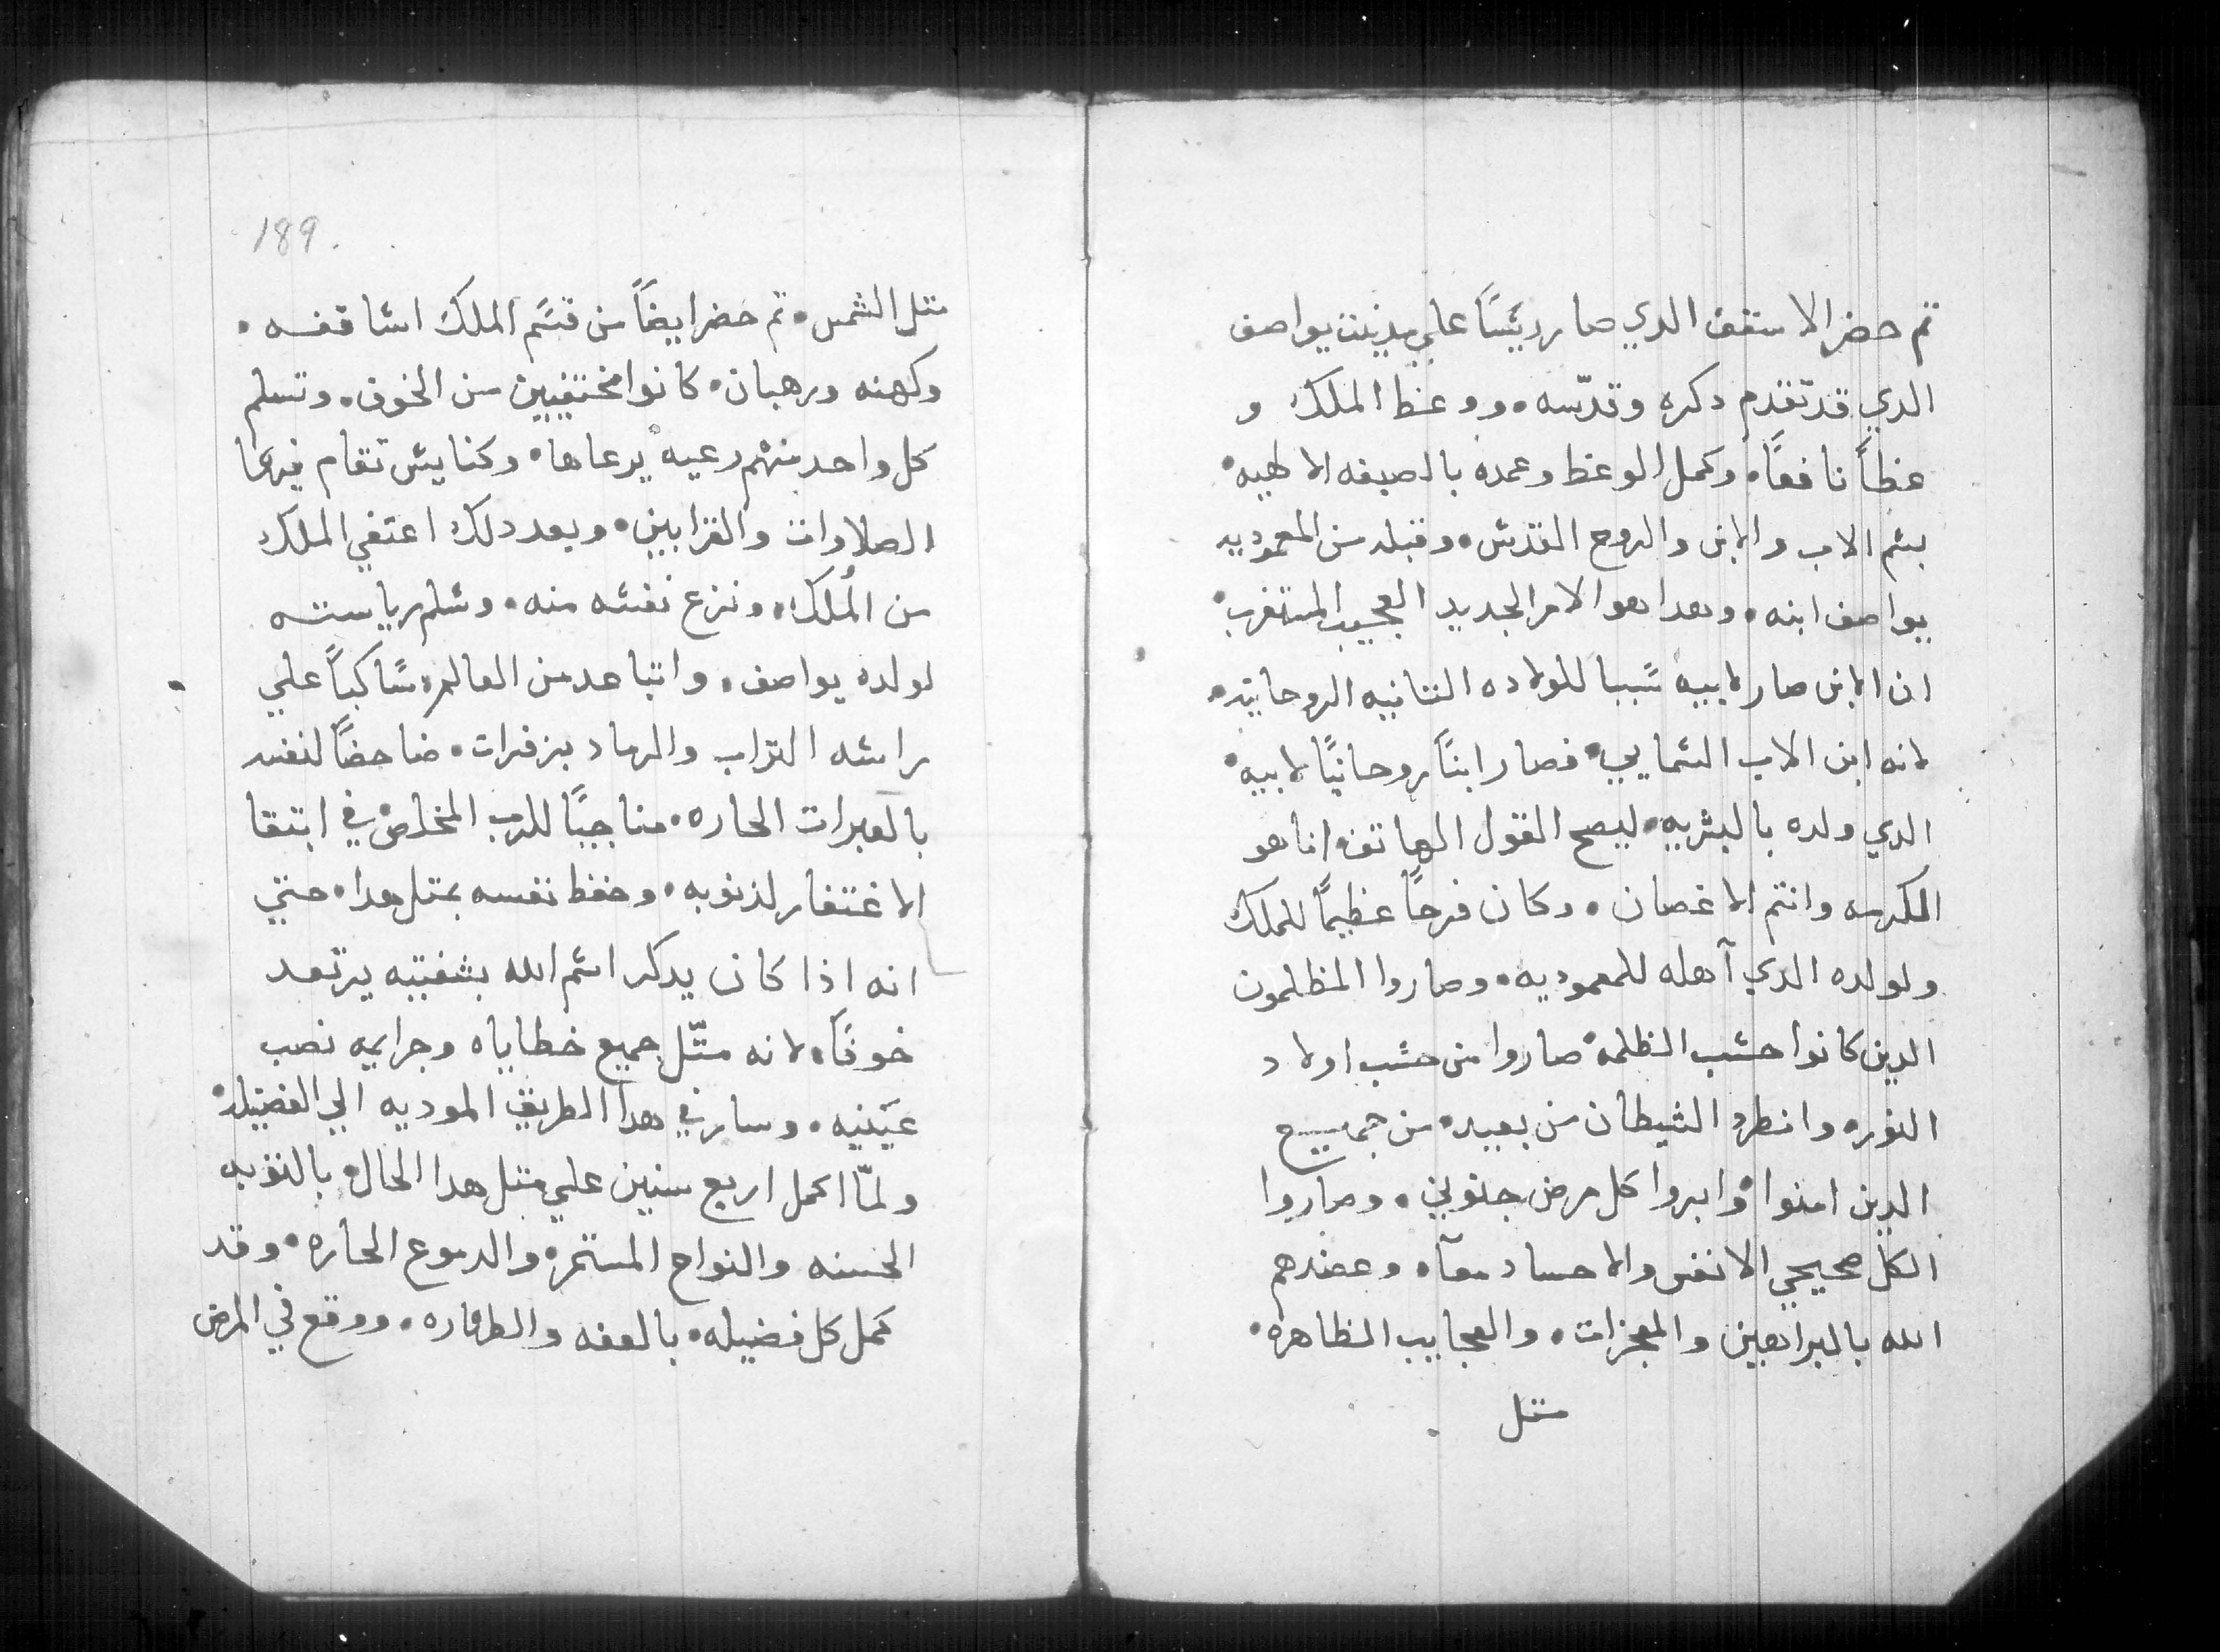 تم حضر الاسقف الدي صار رييسًا علي مدينت يواصف
الدي قد تقدم دكره وقدّسه. ووعظ الملك و
عظاً نافعًا. وكمل الوعظ وعمده بالصبغه الالهيه.
بسم الاب والابن والروح القدس. وقبله من المعموديه
يواصف ابنه. وهدا هو الامر الجديد العجيب المستغرب.
ان الابن صار لابيه سَببا للولاده التانيه الروحانيه.
لانه ابن الاب السمايي. فصار ابنًا روحانيًا لابيه.
الدي ولده بالبشريه. ليصح القول الهاتف. انا هو
الكرمه وانتم الاغصان. وكان فرحًا عظيمًا للملك
ولولده الدي آهله للمعموديه. وصاروا المظلمون
الدين كانوا حسب الظلمه. صاروا من حسب اولاد
النور. وانطرد الشيطان من بعيد. من جميع
الدين امنوا. وابروا كل مرض جنوني. وصاروا
الكل صحيحي الانفس والاجساد معآ. وعضدهم
الله بالبراهين والمعجزات. والعجايب الظاهره.
متل
189.
متل الشمس. تم حضر ايضاً من قسَّم الملك اساقفه.
وكهنه ورهبان. كانوا مختفيين من الخوف. وتسلم
كل واحد منهم رعيه يرعاها. وكنايس تقام فيها
الصلاوات والقرابين. وبعد دلك اعتفي الملك
من المُلك. ونزع نفسه منه. وسلم رياسته
لولده يواصف. واتباعد من العالم. سَاكباً علي
راسه التراب والرماد بزفرات. ضاحضاً لنفسه
بالعبرات الحاره. مناجيًا للرب المخلص في ابتغا
الاغتفار لذنوبه. وحفظ نفسه بمتل هدا. حتي
انه اذا كان يدكر اسم الله بشفتيه يرتعد
خوفًا. لانه متّل جميع خطاياه وجرايمه نصب
عَينيه. وسار في هدا الطريق الموديه الي الفضيله.
ولمّا اكمل اربع سنين علي متل هدا الحال. بالتوبه
الحسنه والنواح المستمر. والدموع الحاره. وقد
كمل كل فضيله. بالعفه والطهاره. ووقع في المرض